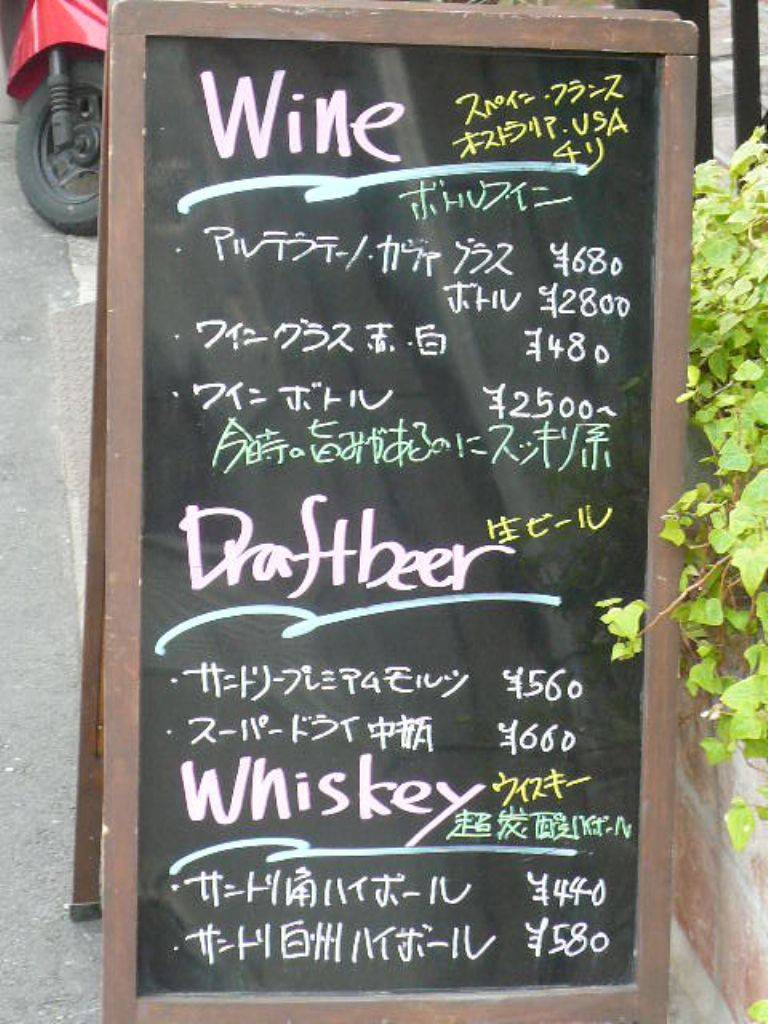 Wine
スペイン・フランス
オーストラリア・USA
チリ
ボトルワイン
・アルテラテーノ・カヴァ グラス ¥680
ボトル ¥2800
・ワイングラス 赤・白 ¥480
・ワインボトル ¥2500~
今時の旨みがあるのにスッキリ系
Draftbeer
生ビール
・サントリープレミアムモルツ ¥560
・スーパードライ 中瓶 ¥660
Whiskey
ウイスキー
超炭酸ハイボール
・サントリ角ハイボール ¥440
・サントリ白州ハイボール ¥580